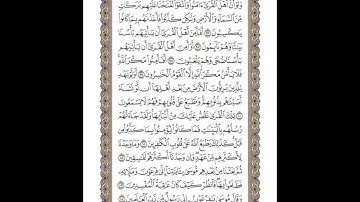 وَلَوْ أَنَّ أَهْلَ ٱلْقُرَىٰٓ ءَامَنُوا۟ وَٱتَّقَوْا۟ لَفَتَحْنَا عَلَيْهِم بَرَكَٰتٍ
مِّنَ ٱلسَّمَآءِ وَٱلْأَرْضِ وَلَٰكِن كَذَّبُوا۟ فَأَخَذْنَٰهُم بِمَا كَانُوا۟
يَكْسِبُونَ ٩٦ أَفَأَمِنَ أَهْلُ ٱلْقُرَىٰٓ أَن يَأْتِيَهُم بَأْسُنَا
بَيَٰتًا وَهُمْ نَآئِمُونَ ٩٧ أَوَأَمِنَ أَهْلُ ٱلْقُرَىٰٓ أَن يَأْتِيَهُم
بَأْسُنَا ضُحًى وَهُمْ يَلْعَبُونَ ٩٨ أَفَأَمِنُوا۟ مَكْرَ ٱللَّهِ
فَلَا يَأْمَنُ مَكْرَ ٱللَّهِ إِلَّا ٱلْقَوْمُ ٱلْخَٰسِرُونَ ٩٩ أَوَلَمْ يَهْدِ
لِلَّذِينَ يَرِثُونَ ٱلْأَرْضَ مِنۢ بَعْدِ أَهْلِهَآ أَن لَّوْ نَشَآءُ
أَصَبْنَٰهُم بِذُنُوبِهِمْ وَنَطْبَعُ عَلَىٰ قُلُوبِهِمْ فَهُمْ لَا يَسْمَعُونَ
١٠٠ تِلْكَ ٱلْقُرَىٰ نَقُصُّ عَلَيْكَ مِنْ أَنۢبَآئِهَا وَلَقَدْ جَآءَتْهُمْ
رُسُلُهُم بِٱلْبَيِّنَٰتِ فَمَا كَانُوا۟ لِيُؤْمِنُوا۟ بِمَا كَذَّبُوا۟ مِن
قَبْلُ كَذَٰلِكَ يَطْبَعُ ٱللَّهُ عَلَىٰ قُلُوبِ ٱلْكَٰفِرِينَ ١٠١ وَمَا وَجَدْنَا
لِأَكْثَرِهِم مِّنْ عَهْدٍ وَإِن وَجَدْنَآ أَكْثَرَهُمْ لَفَٰسِقِينَ ١٠٢
ثُمَّ بَعَثْنَا مِنۢ بَعْدِهِم مُّوسَىٰ بِـَٔايَٰتِنَآ إِلَىٰ فِرْعَوْنَ وَمَلَإِي۟هِۦ
فَظَلَمُوا۟ بِهَا فَٱنظُرْ كَيْفَ كَانَ عَٰقِبَةُ ٱلْمُفْسِدِينَ ١٠٣
وَقَالَ مُوسَىٰ يَٰفِرْعَوْنُ إِنِّى رَسُولٌ مِّن رَّبِّ ٱلْعَٰلَمِينَ ١٠٤